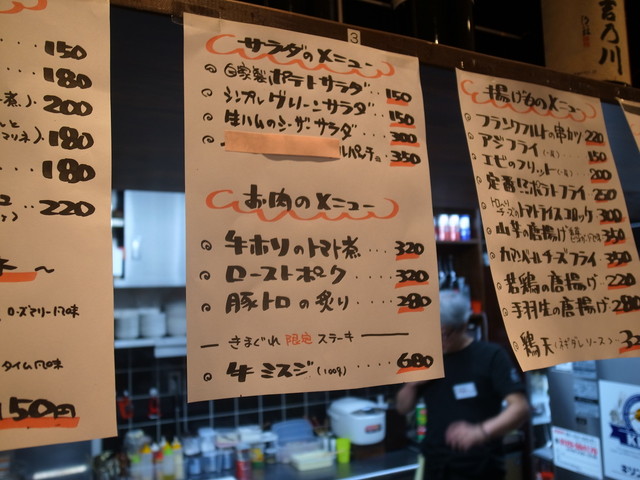 150
180
200
180
180
220
ローズマリー風味
タイム風味
150円
3
サラダのメニュー
自家製ポテトサラダ 150
シンプルグリーンサラダ 150
生ハムのシーザーサラダ 300
350
お肉のメニュー
牛ホリのトマト煮 320
ローストポーク 320
豚トロの炙り 280
きまぐれ限定ステーキ
牛ミスジ(100g) 680
揚げものメニュー
フランクフルトの串カツ 220
アジフライ 150
エビのフリット 200
定番ポテトフライ 250
トマトライスコロッケ 300
山芋の唐揚げ 350
カマンベールチーズフライ 350
若鶏の唐揚げ 220
手羽先の唐揚げ 280
鶏天(ネギダレソース)
吉乃川